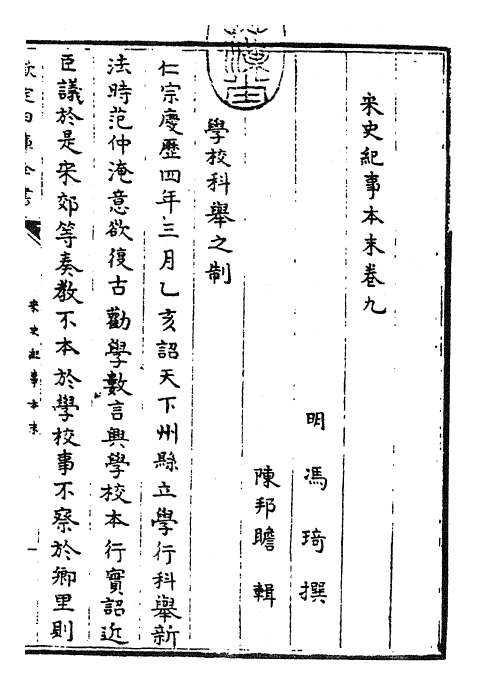 宋史紀事本末卷九
明 馮琦 撰
陳邦瞻 輯
學校科舉之制
仁宗慶歷四年三月乙亥詔天下州縣立學行科舉新
法時范仲淹意欲復古勸學數言興學校本行實詔近
臣議於是宋郊等奏教不本於學校事不察於鄉里則
欽定四庫全書
宋史紀事本末
一